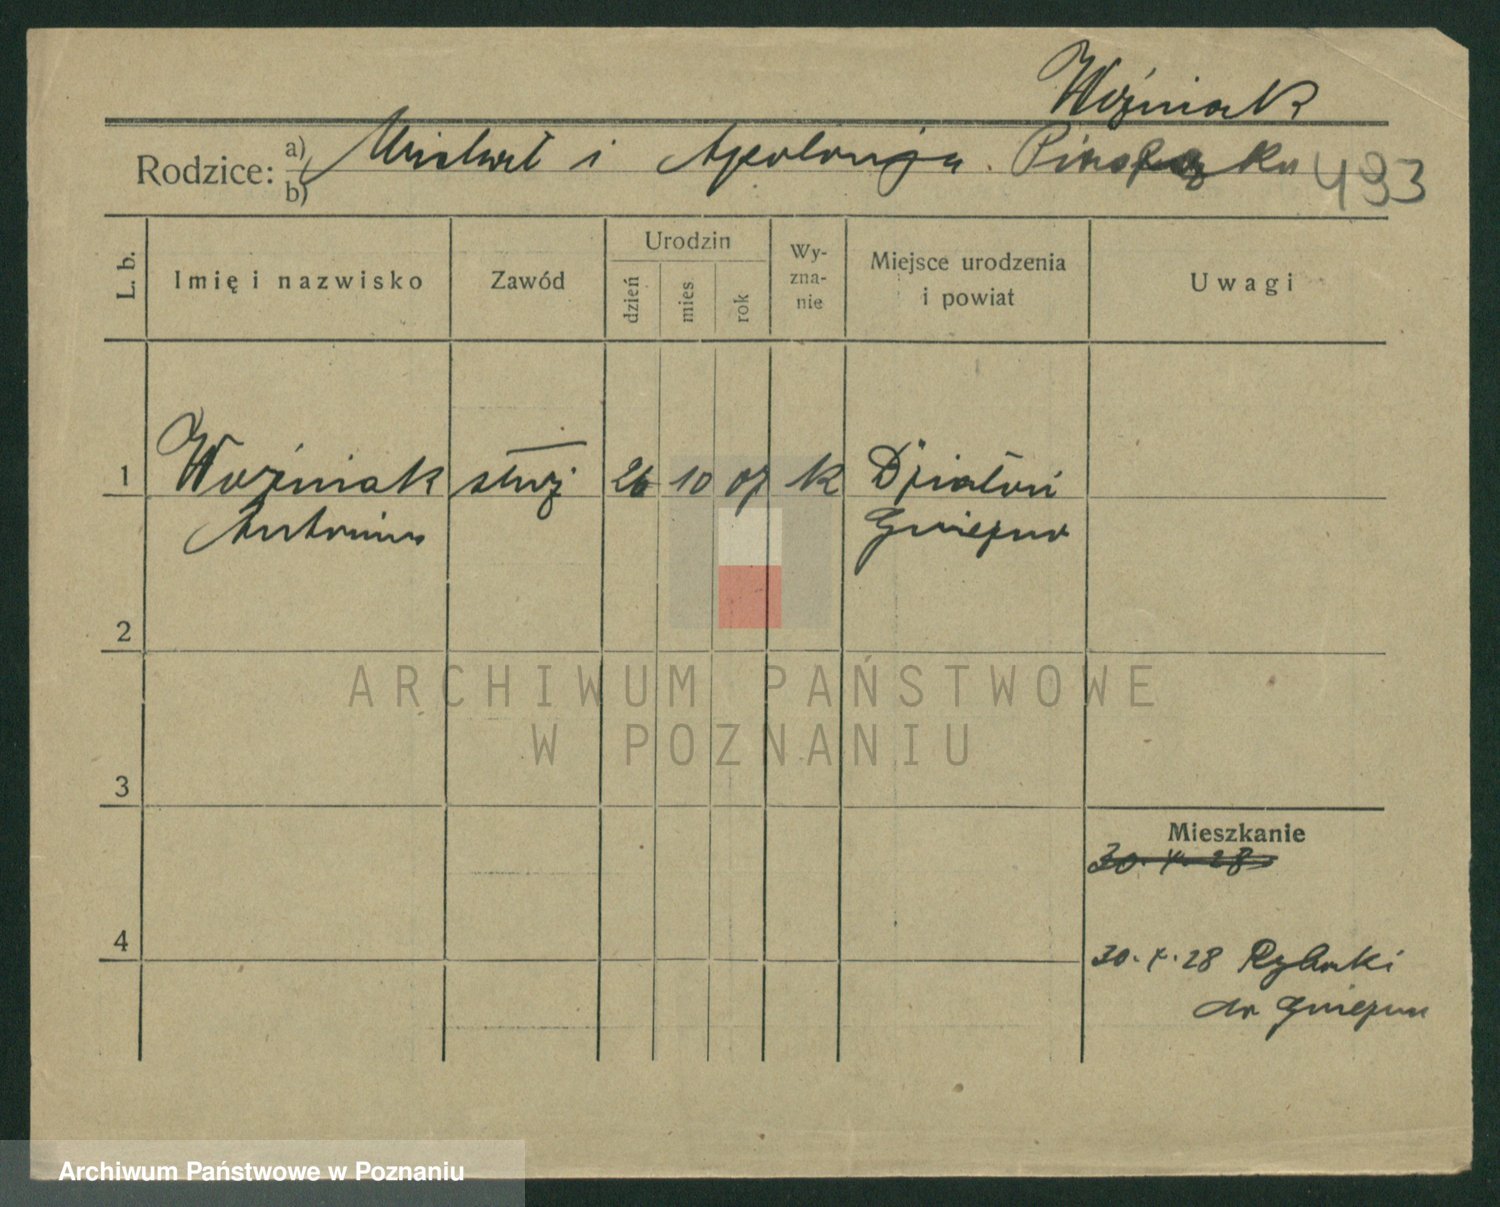 Woźniak
Rodzice: a) Michał i Apolonja
b)
493
L. b.
Imię i nazwisko
Zawód
Urodzin
dzień
mies
rok
Wy-
zna-
nie
Miejsce urodzenia
i powiat
Uwagi
1 Woźniak służ 26 10 07 k Działyń
Antonina Gniezno
2
3
4
Mieszkanie
30. X. 28
30. X. 28 Rybaki
do Gniezna
ARCHIWUM PAŃSTWOWE
W POZNANIU
Archiwum Państwowe w Poznaniu